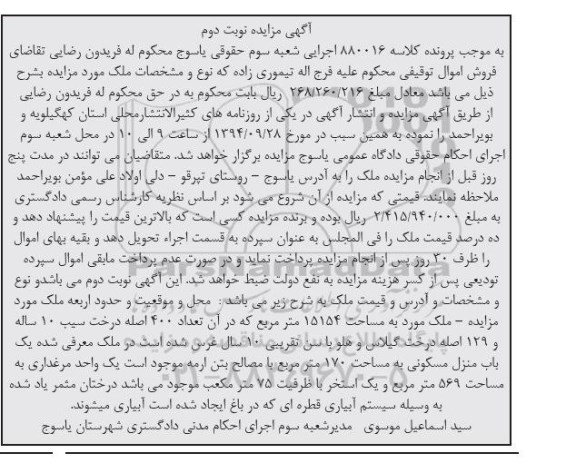 آگهی مزایده نوبت دوم
به موجب پرونده کلاسه ۸۸۰۰۱۶ اجرایی شعبه سوم حقوقی یاسوج محکوم له فریدون رضایی تقاضای
فروش اموال توقیفی محکوم علیه فرج اله تیموری زاده که نوع و مشخصات ملک مورد مزایده بشرح
ذیل می باشد معادل مبلغ ۲۶۸/۲۶۰/۲۱۶ ریال بابت محکوم به در حق محکوم له فریدون رضایی
از طریق آگهی مزایده و انتشار آگهی در یکی از روزنامه های کثیرالانتشارمحلی استان کهگیلویه و
بویراحمد را نموده به همین سبب در مورخ ۱۳۹۴/۰۹/۲۸ از ساعت ۹ الی ۱۰ در محل شعبه سوم
اجرای احکام حقوقی دادگاه عمومی یاسوج مزایده برگزار خواهد شد. متقاضیان می توانند در مدت پنج
روز قبل از انجام مزایده ملک را به آدرس یاسوج – روستای تپرقو – دلی اولاد علی مؤمن بویراحمد
ملاحظه نمایند. قیمتی که مزایده از آن شروع می شود بر اساس نظریه کارشناس رسمی دادگستری
به مبلغ ۲/۴۱۵/۹۴۰/۰۰۰ ریال بوده و برنده مزایده کسی است که بالاترین قیمت را پیشنهاد دهد و
ده درصد قیمت ملک را فی المجلس به عنوان سپرده به قسمت اجراء تحویل دهد و بقیه بهای اموال
را ظرف ۳۰ روز پس از انجام مزایده پرداخت نماید و در صورت عدم پرداخت مابقی اموال سپرده
تودیعی پس از کسر هزینه مزایده به نفع دولت ضبط خواهد شد. این آگهی نوبت دوم می باشدو نوع
و مشخصات و آدرس و قیمت ملک به شرح زیر می باشد : محل و موقعیت و حدود اربعه ملک مورد
مزایده – ملک مورد به مساحت ۱۵۱۵۴ متر مربع که در آن تعداد ۴۰۰ اصله درخت سیب ۱۰ ساله
و ۱۲۹ اصله درخت گیلاس و هلو با سن تقریبی ۱۰ سال غرس شده است در ملک معرفی شده یک
باب منزل مسکونی به مساحت ۱۷۰ متر مربع با مصالح بتن ارمه موجود است یک واحد مرغداری به
مساحت ۵۶۹ متر مربع و یک استخر با ظرفیت ۷۵ متر مکعب موجود می باشد درختان مثمر یاد شده
به وسیله سیستم آبیاری قطره ای که در باغ ایجاد شده است آبیاری میشوند.
سید اسماعیل موسوی مدیرشعبه سوم اجرای احکام مدنی دادگستری شهرستان یاسوج
ParsNamadData